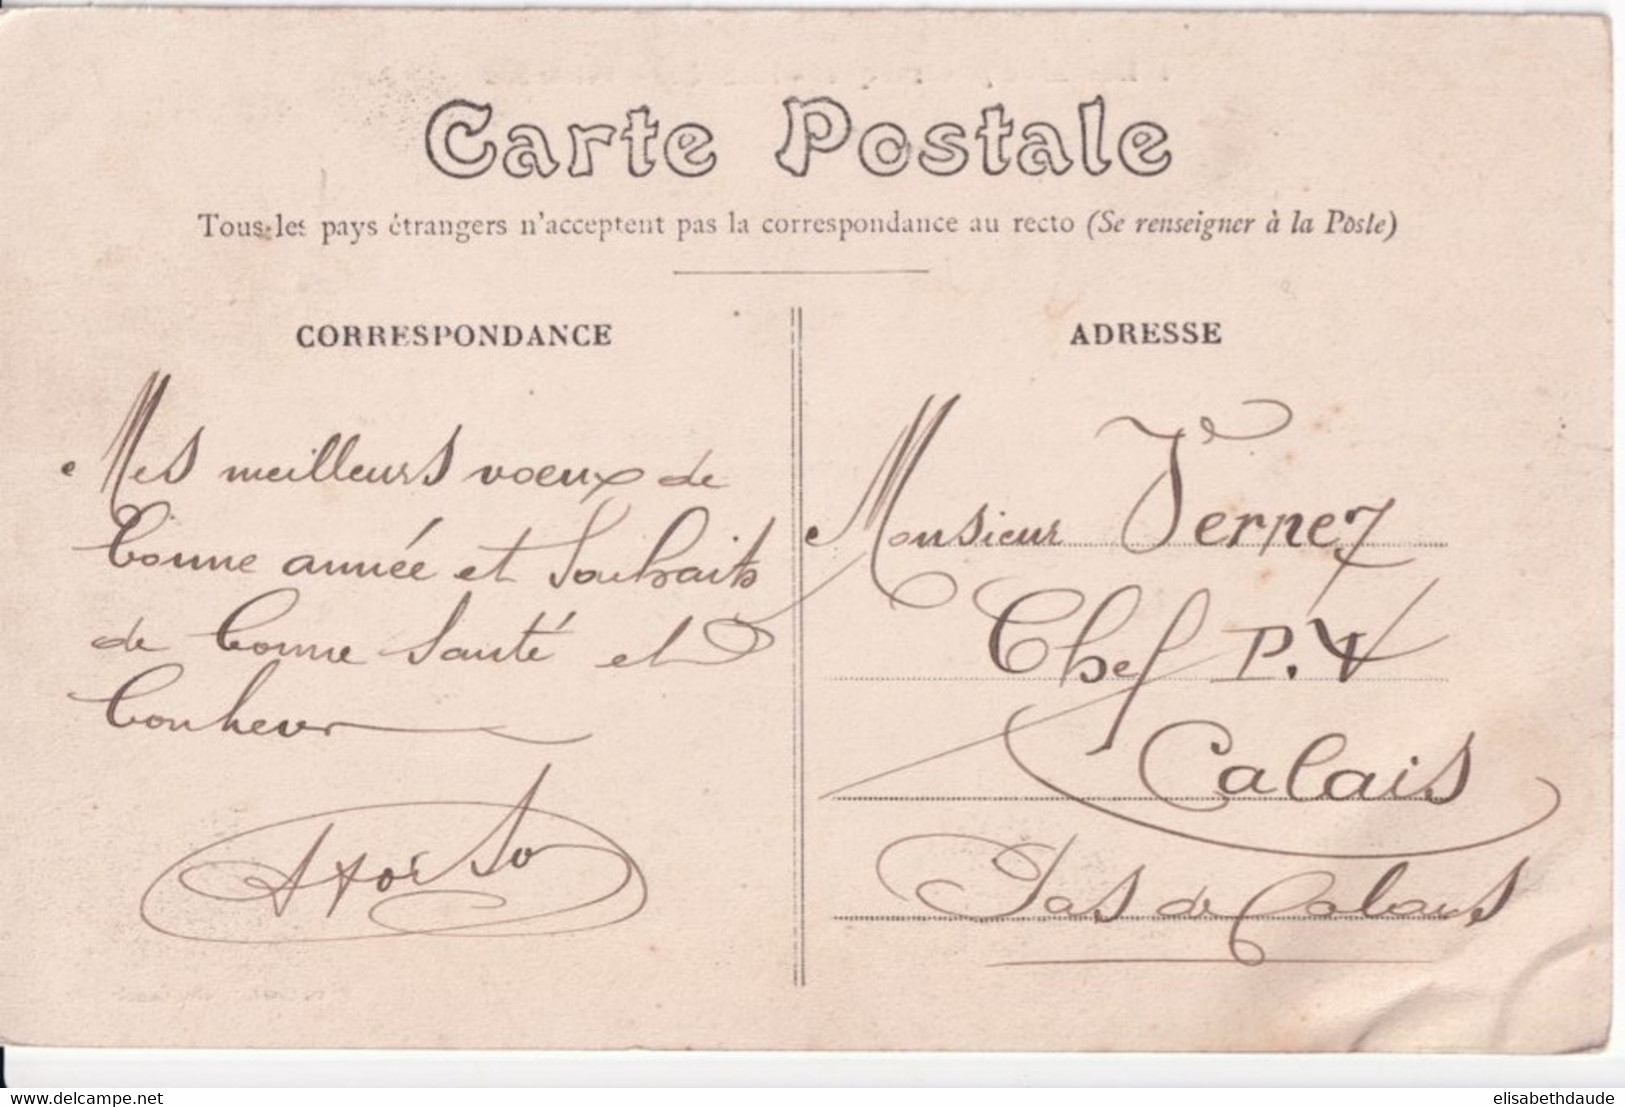 Carte Postale
Tous les pays étrangers n'acceptent pas la correspondance au recto (Se renseigner à la Poste)
CORRESPONDANCE
Mes meilleurs voeux de
bonne année et souhaits
de bonne santé et
bonheur
ADRESSE
Monsieur Vernez
Chef P.V
Calais
Pas de Calais
delcampe.net
elisabethdaude